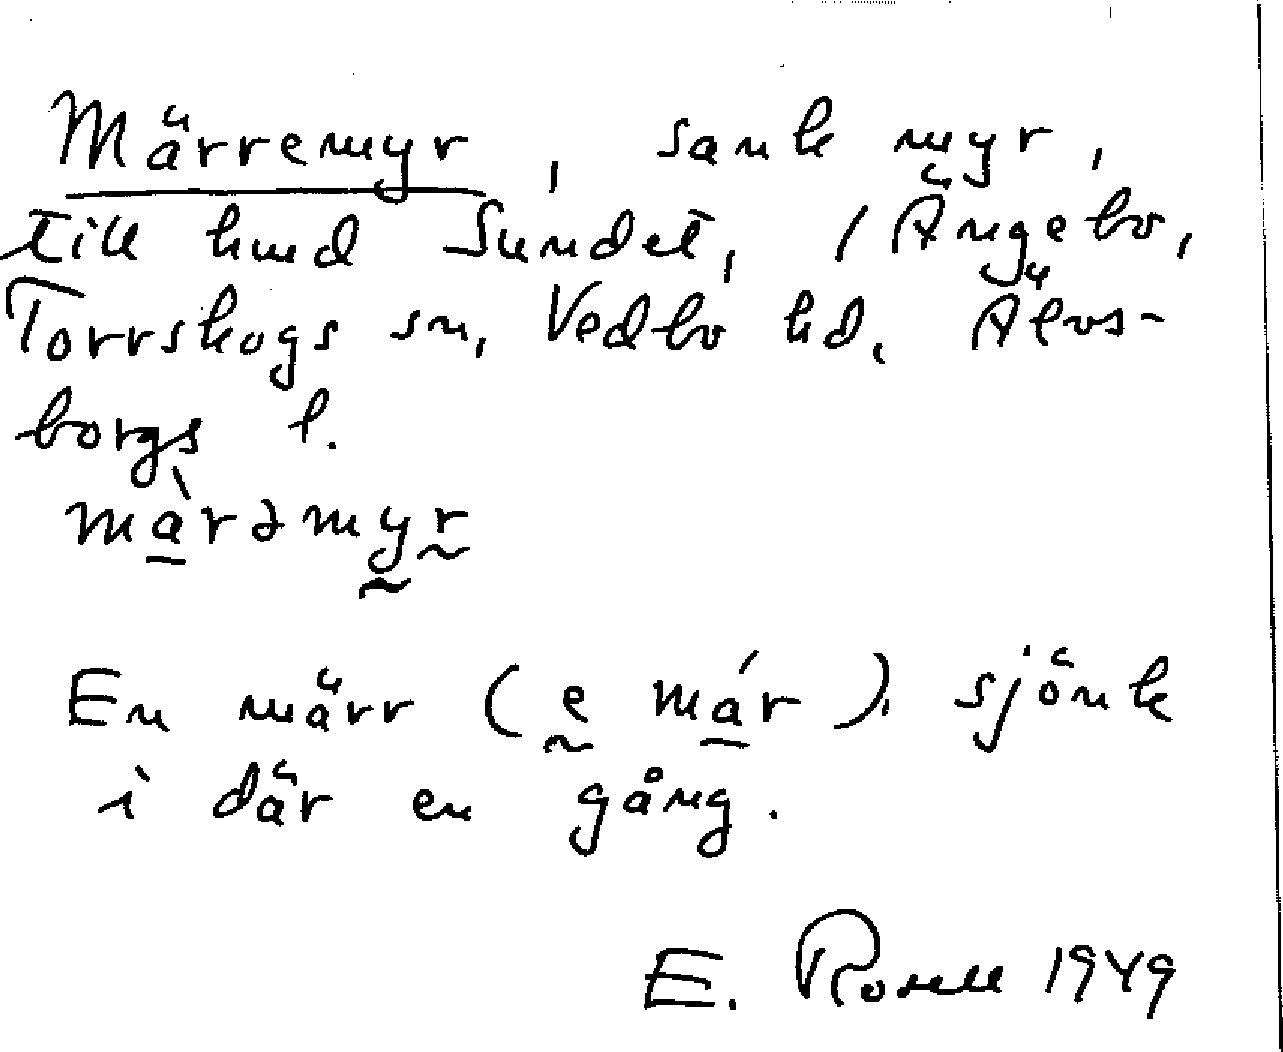 Märremyr, sank myr,
till hmd Sundet, 1 Ängebo,
Torrskogs sn, Vedbo hd, Älvs-
borgs l.
màrəmyr
En märr (e már), sjönk
i där en gång.
E. Rosell 1949